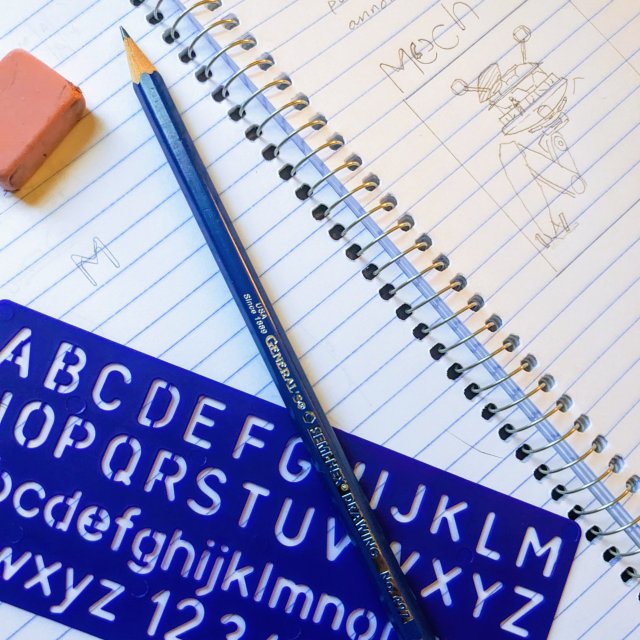 Mech
M
USA
Since 1889 GENERAL'S® KIMBERLY DRAWING
ABCDEFG IJKLM
OPQRSTUV XYZ
bcdefghijklmno
wxyz 123